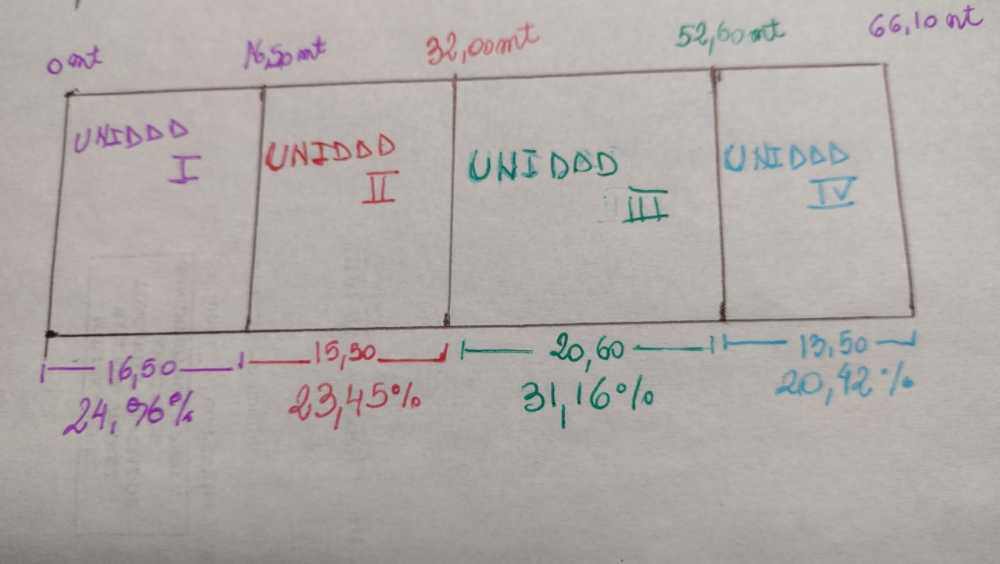 0 mt
16,50 mt
32,00 mt
52,60 mt
66,10 mt
UNIDAD
I
UNIDAD
II
UNIDAD
III
UNIDAD
IV
16,50
15,50
20,60
13,50
24,96%
23,45%
31,16%
20,42%